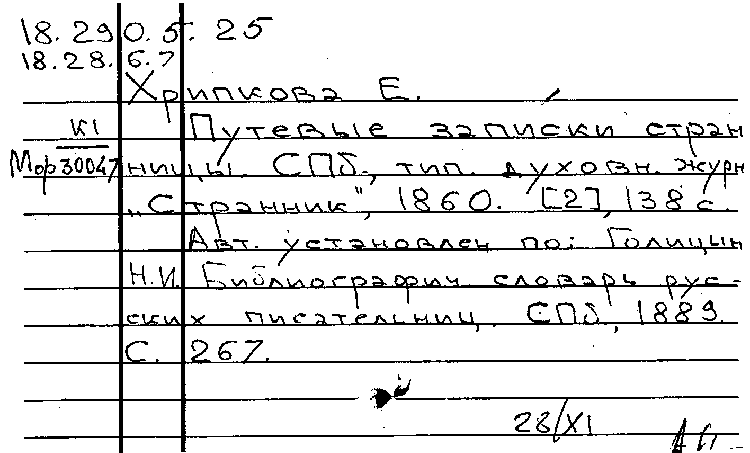 18.29 0.5. 25
18.28.6.7
Хрипкова Е.
К1 Путевые записки стран
Мор30047 ницы. СПб., тип. духовн. журн
„Странник", 1860. [2], 138 с.
Авт. установлен по: Голицын
Н.И. Библиографич. словарь рус-
ских писательниц. СПб, 1889.
С. 267.
28/XI